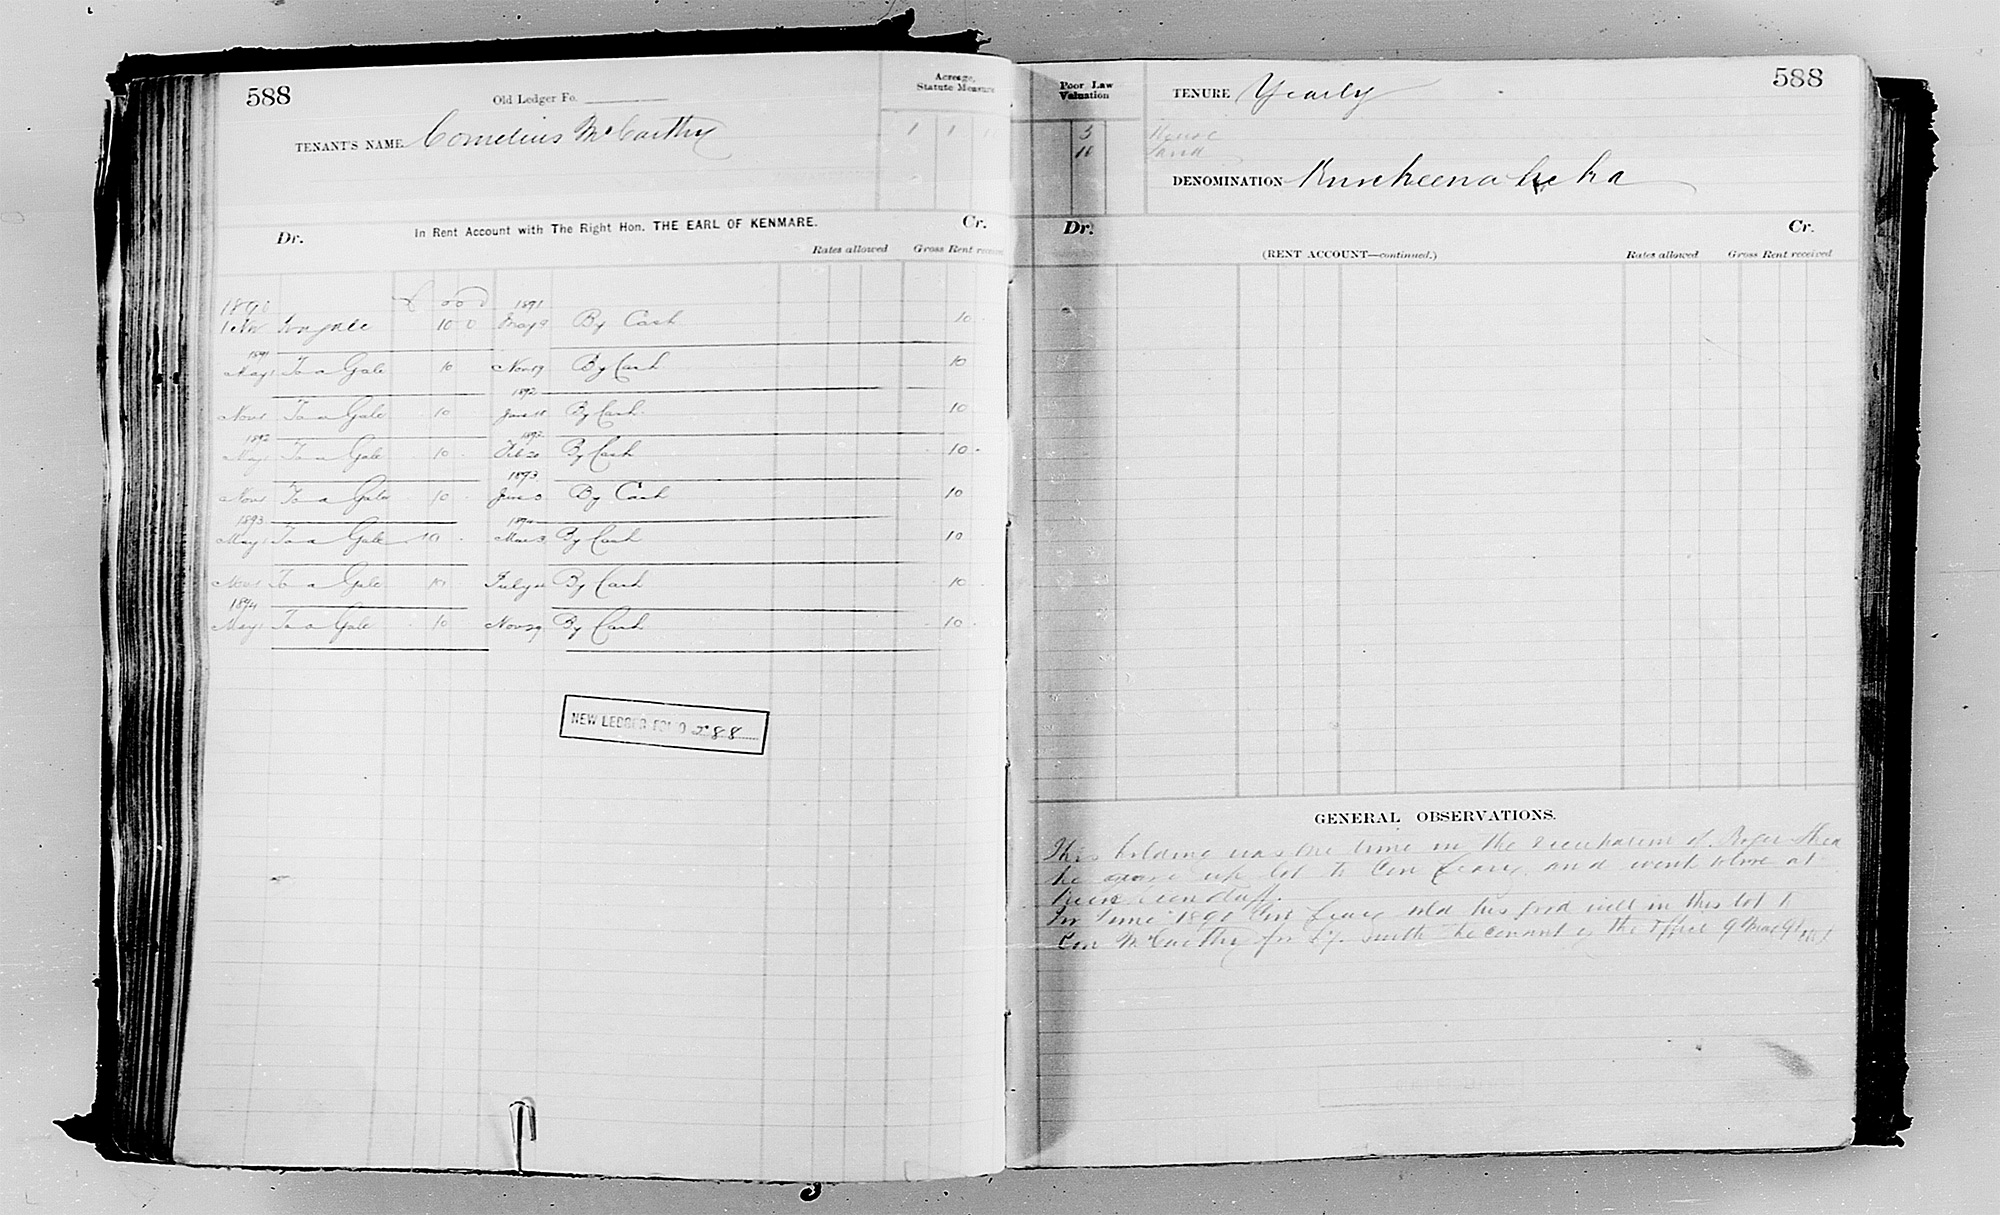 588
Old Ledger Fo.
Acreage,
Statute Measure
TENANT'S NAME Cornelius McCarthy
1 1
In Rent Account with The Right Hon. THE EARL OF KENMARE.
Dr. Cr.
Rates allowed Gross Rent received
1890 £ 1891
1 Nov 10 0 May 9 By Cash 10
1891
May 1 To a Gale 10 Nov 19 By Cash 10
1892
Nov 1 To a Gale 10 By Cash 10
1892
May 1 To a Gale 10 Feb 20 By Cash 10
1893
Nov 1 To a Gale 10 June 3 By Cash 10
1893 1894
May 1 To a Gale 10 Mar 3 By Cash 10
Nov 1 To a Gale 10 July By Cash 10
1894
May 1 To a Gale 10 Nov 29 By Cash 10
NEW LEDGER FOLIO 288
588
Poor Law
Valuation
TENURE Yearly
3 House
10 Land
DENOMINATION
Dr. Cr.
(RENT ACCOUNT—continued.)
Rates allowed Gross Rent received
GENERAL OBSERVATIONS.
This holding was one time in the of Roger Shea
he gave up lot to Con Leary and went to live at
In June 1890 Con Leary sold his good will in this lot to
Con McCarthy for the Office 9 May 91